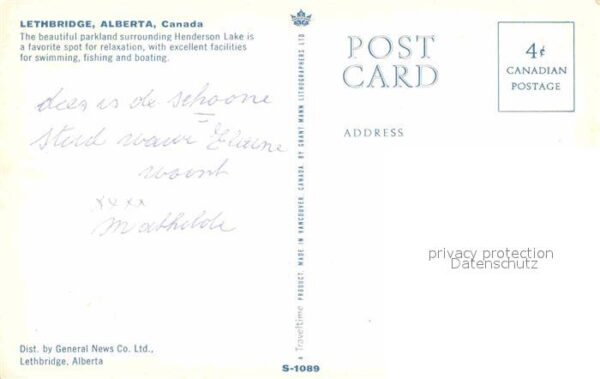 LETHBRIDGE, ALBERTA, Canada
The beautiful parkland surrounding Henderson Lake is
a favorite spot for relaxation, with excellent facilities
for swimming, fishing and boating.
POST
CARD
4¢
CANADIAN
POSTAGE
ADDRESS
deez is de schoone
stad waar Elaine
woont
xxxx
Mathilde
A Traveltime PRODUCT, MADE IN VANCOUVER, CANADA, BY GRANT MANN LITHOGRAPHERS LTD
privacy protection
Datenschutz
Dist. by General News Co. Ltd.,
Lethbridge, Alberta
S-1089